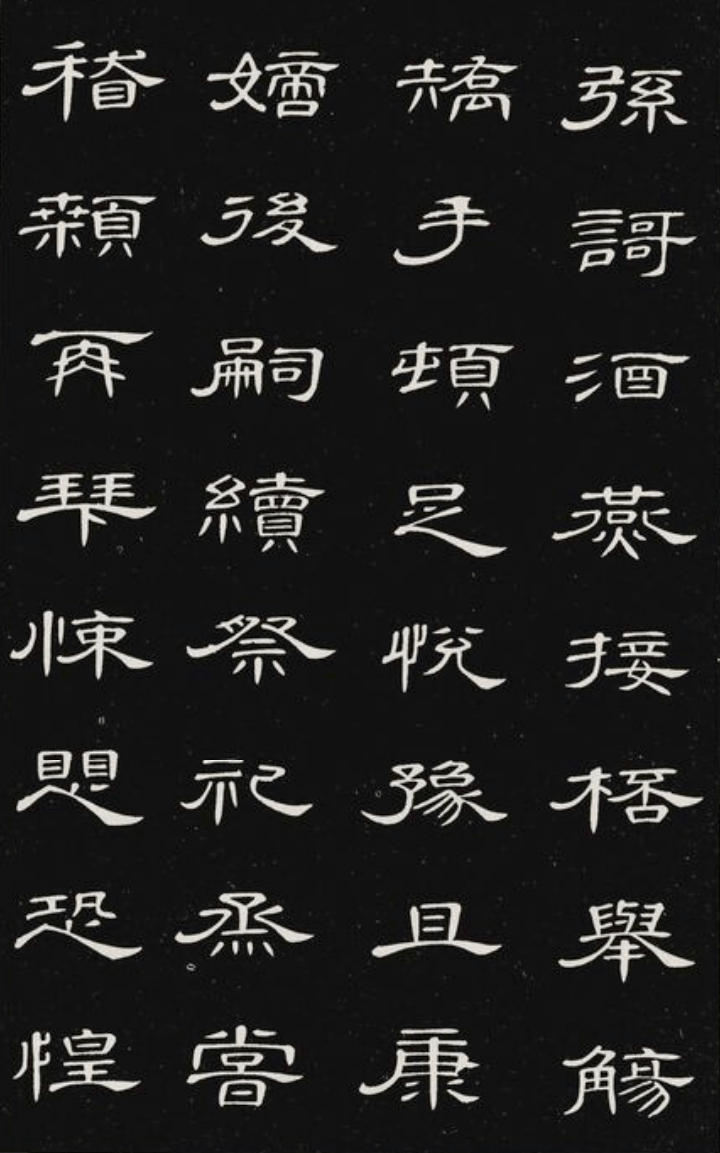 弦歌酒讌接杯舉觴
矯手頓足悅豫且康
嫡後嗣續祭祀烝嘗
稽顙再拜悚懼恐惶